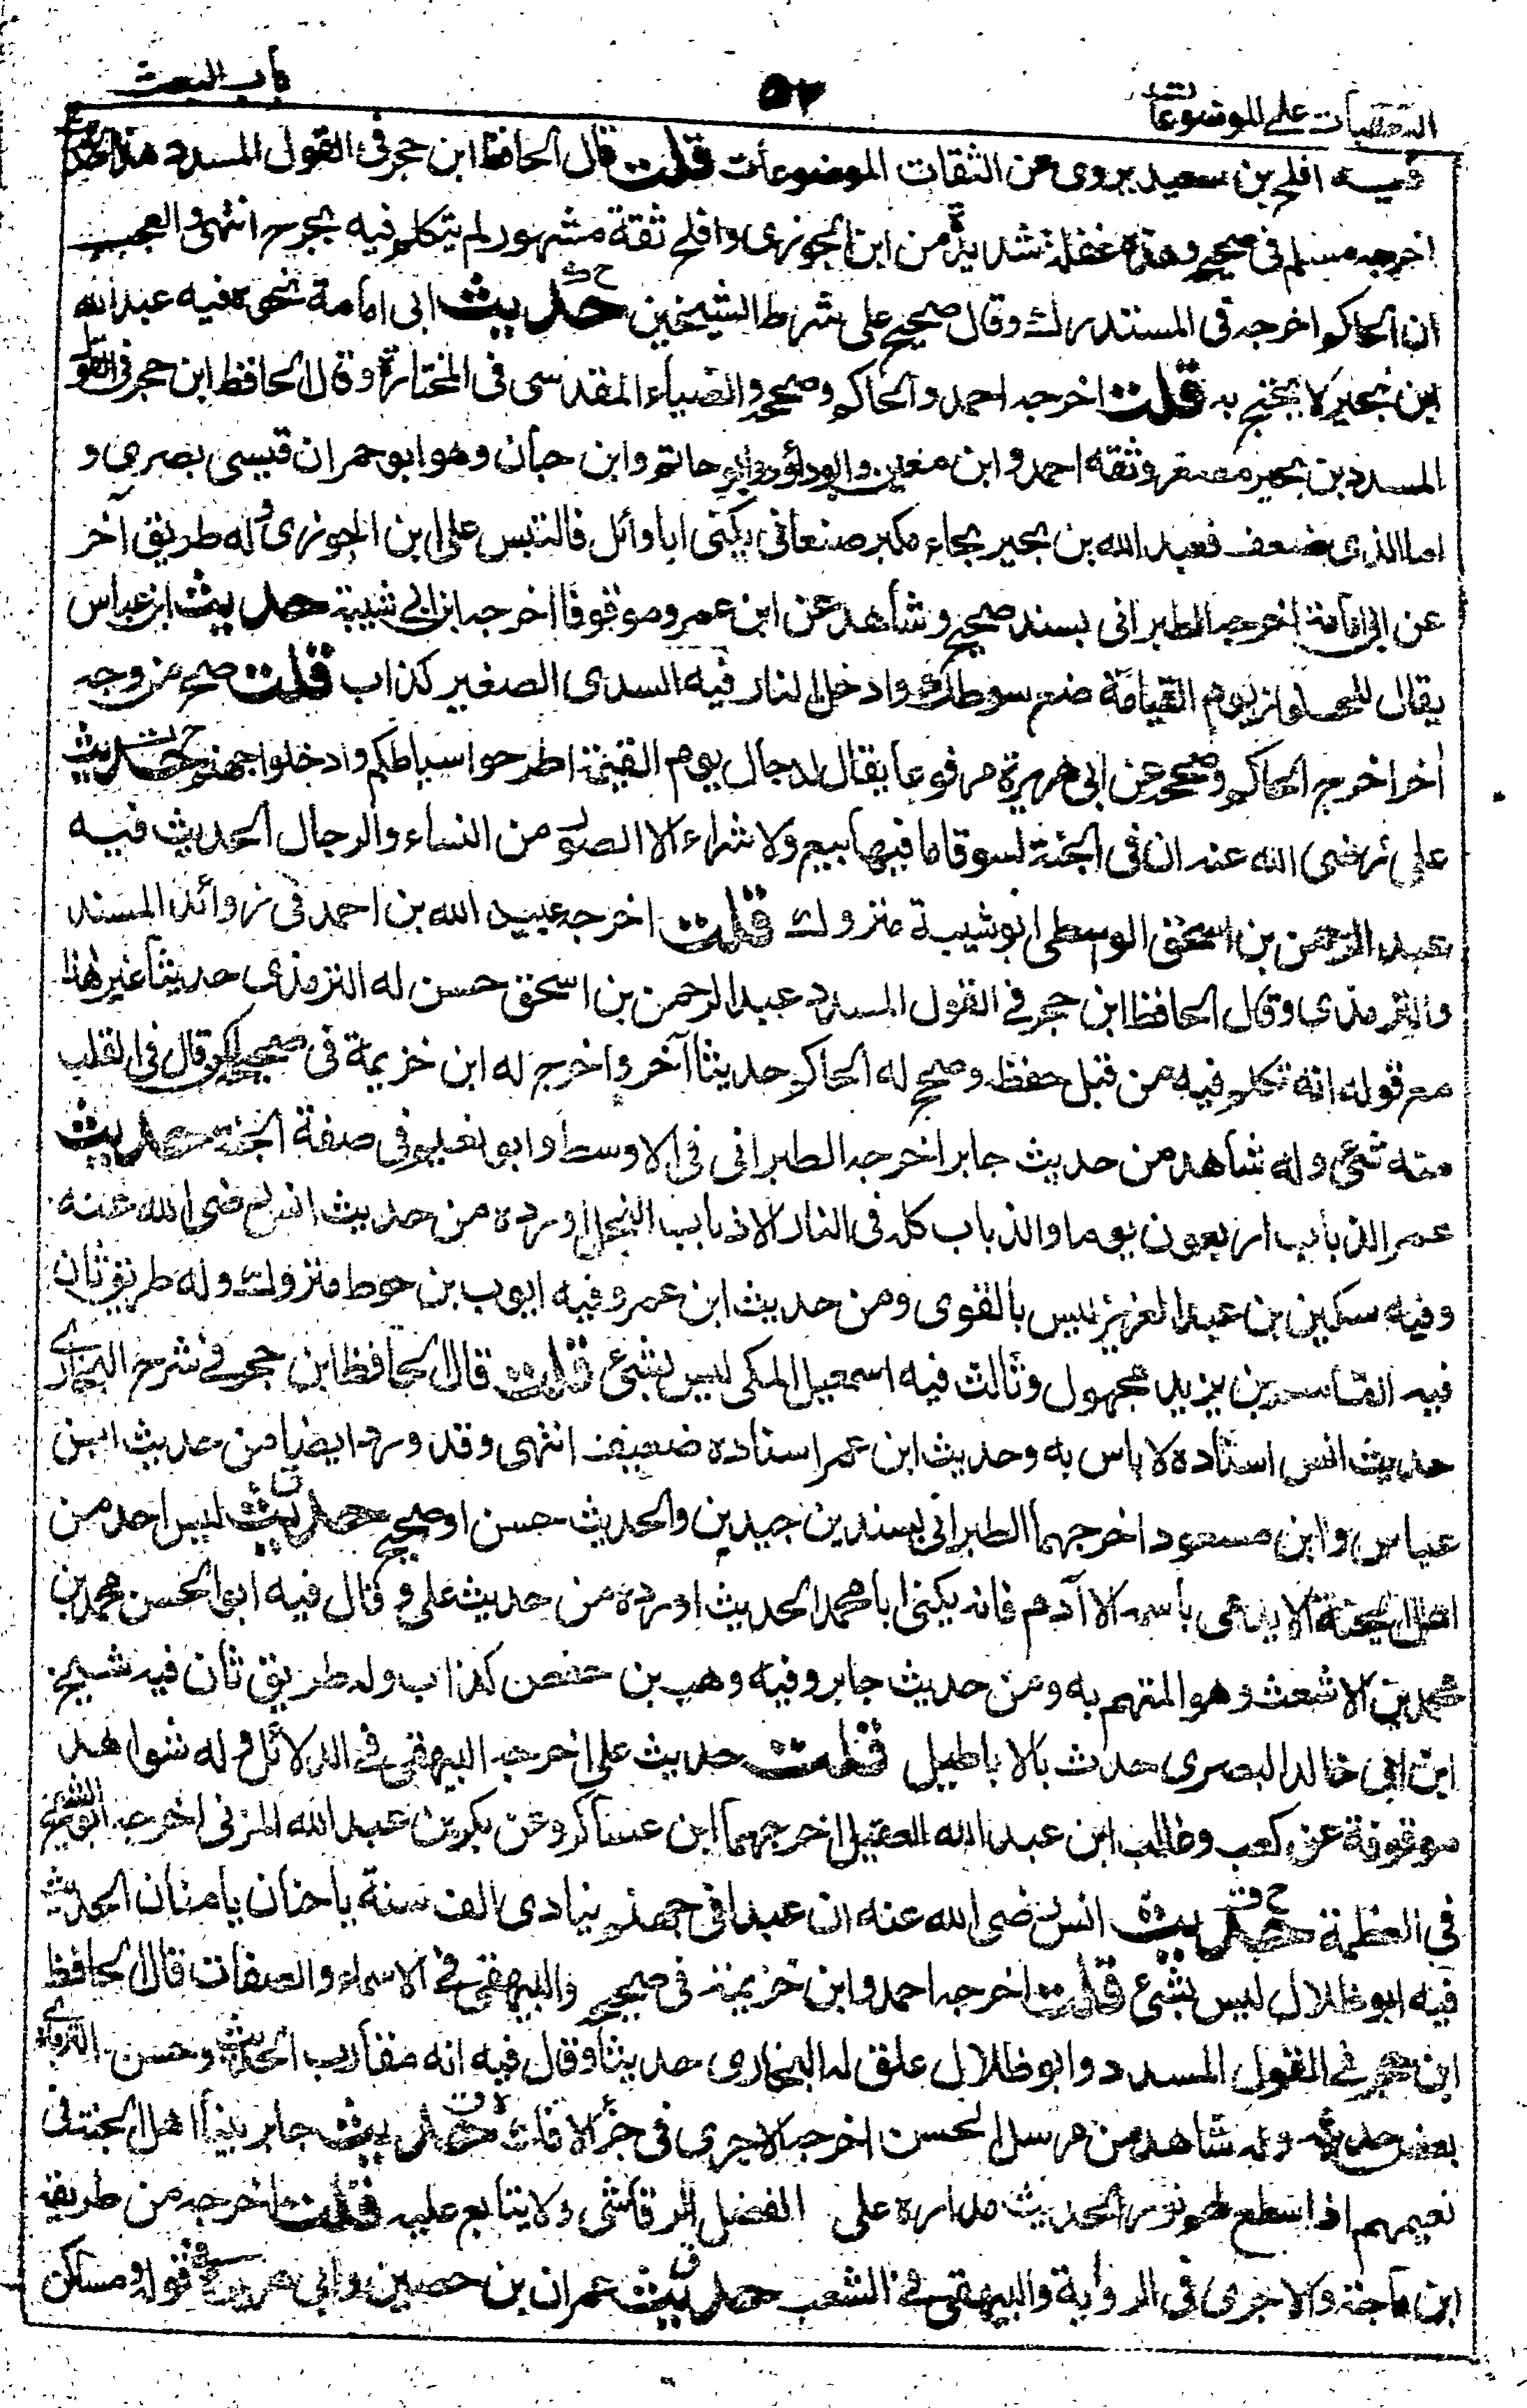 باب البعث
٥٢
التعقبات على الموضوعات
فيه افلح بن سعيد يروى عن الثقات الموضوعات قلت قال الحافظ ابن حجر فى القول المسدد هذا الحديث
اخرجه مسلم فى صحيحه وهذه غفلة شديدة من ابن الجوزى وافلح ثقة مشهور لم يتكلم فيه بجرح انتهى والعجب
ان الحاكم اخرجه فى المستدرك وقال صحيح على شرط الشيخين حديث ابى امامة نحوه فيه عبد الله
ابن بحير لا يحتج به قلت اخرجه احمد والحاكم وصححه والضياء المقدسى فى المختارة وقال الحافظ ابن حجر فى القول
المسدد بن بحير مصغر وثقه احمد و ابن معين وابو داؤد وابو حاتم وابن حبان وهو ابو حمران قيسى بصرى و
اما الذى ضعف فعبد الله بن بحير بحاء مكبر صنعانى يكنى ابا وائل فالتبس على ابن الجوزى وله طريق آخر
عن ابى امامة اخرجه الطبرانى بسند صحيح وشاهد عن ابن عمرو موقوفا اخرجه ابن ابى شيبة حديث ابن عباس
يقال للجلواز يوم القيامة ضع سوطك وادخل النار فيه السدى الصغير كذاب قلت صح من وجه
اخر اخرج الحاكم وصححه عن ابى هريرة مرفوعا يقال لرجال يوم القيمة اطرحوا سياطكم وادخلوا جهنم حديث
على رضى الله عنه ان فى الجنة لسوقا ما فيها بيع ولا شراء الا الصور من النساء والرجال الحديث فيه
عبد الرحمن بن اسحق الواسطى ابو شيبة متروك قلت اخرجه عبيد الله بن احمد فى زوائد المسند
والترمذى وقال الحافظ ابن حجر فى القول المسدد عبد الرحمن بن اسحق حسن له الترمذى حديثا غير هذا
مع قوله انه تكلم فيه من قبل حفظه وصحح له الحاكم حديثا آخر واخرج له ابن خزيمة فى صحيحه لكن قال فى القلب
منه شئ وله شاهد من حديث جابر اخرجه الطبرانى فى الاوسط وابو نعيم فى صفة الجنة حديث
عمر الذباب اربعون يوما والذباب كله فى النار الا ذباب النحل اورده من حديث انس رضى الله عنه
وفيه سكين بن عبد العزيز ليس بالقوى ومن حديث ابن عمر وفيه ايوب بن خوط متروك وله طريق ثان
فيه القاسم بن يزيد مجهول وثالث فيه اسمعيل المكى ليس بشئ قلت قال الحافظ ابن حجر فى شرح البخارى
حديث انس اسناده لا باس به وحديث ابن عمر اسناده ضعيف انتهى وقد ورد ايضا من حديث ابن
عباس وابن مسعود اخرجهما الطبرانى بسندين جيدين والحديث حسن او صحيح حديث ليس احد من
اهل الجنة الا يدعى باسمه الا آدم فانه يكنى ابا محمد الحديث اورده من حديث على وقال فيه ابو الحسن محمد بن
محمد بن الاشعث وهو المتهم به ومن حديث جابر وفيه وهب بن حفص كذاب وله طريق ثان فيه شيخ
ابن ابى خالد البصرى حدث بالاباطيل قلت حديث على اخرجه البيهقى فى الدلائل وله شواهد
موقوفة عن كعب وغالب ابن عبد الله العقيلى اخرجهما ابن عساكر وعن بكر بن عبد الله المزنى اخرجه ابو الشيخ
فى العظمة حديث انس رضى الله عنه ان عبدا فى جهنم ينادى الف سنة يا حنان يا منان الحديث
فيه ابو ظلال ليس بشئ قلت اخرجه احمد وابن خزيمة فى صحيحه والبيهقى فى الاسماء والصفات قال الحافظ
ابن حجر فى القول المسدد وابو ظلال علق له البخارى حديثا وقال فيه انه مقارب الحديث وحسن الترمذى
بعض حديثه وله شاهد من مرسل الحسن اخرجه الاجرى حديث جابر بينا اهل الجنة فى
نعيمهم اذ سطع لهم نور الحديث مداره على الفضل الرقاشى ولا يتابع عليه قلت اخرجه من طريقه
ابن ماجة والاجرى فى الرواية والبيهقى فى الشعب حديث عمران بن حصين وابى هريرة فى قوله ومساكن